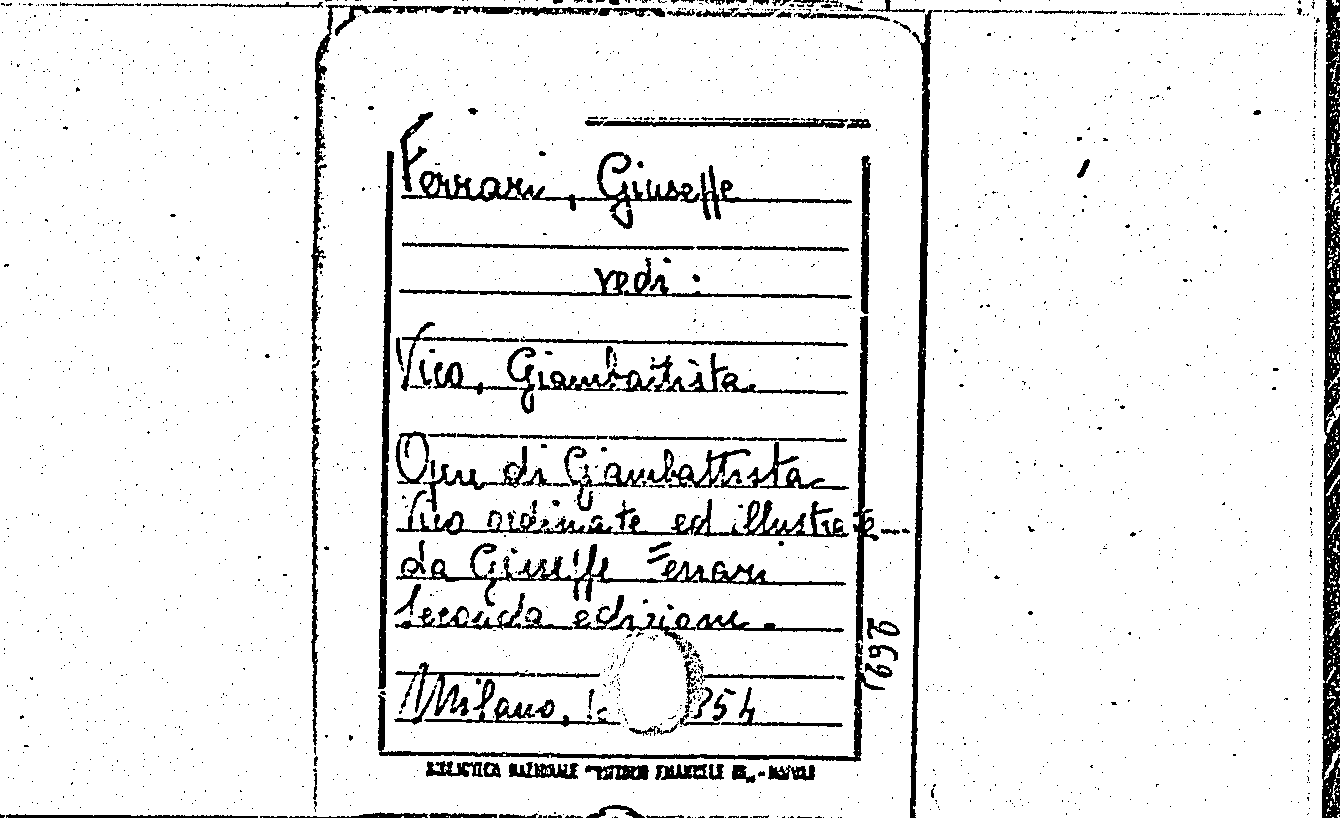 Ferrari, Giuseppe
vedi :
Vico, Giambattista
Opere di Giambattista
Vico ordinate ed illustrate
da Giuseppe Ferrari
Seconda edizione.
Milano, 354
BIBLIOTECA NAZIONALE "VITTORIO EMANUELE III" - NAPOLI